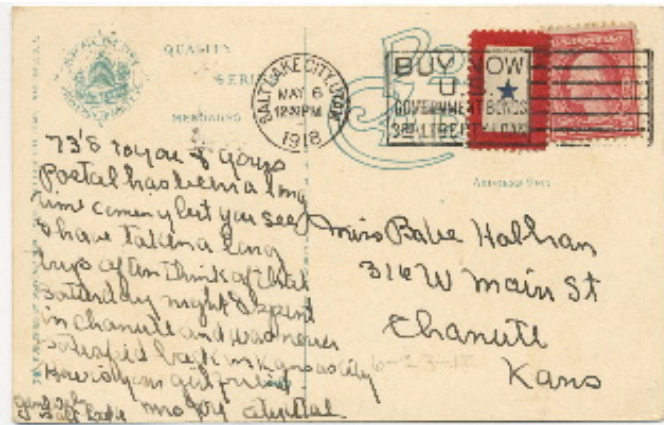 QUALITY
SERIES
SALT LAKE CITY, UTAH
MAY 6
12 PM
1918
BUY NOW
U.S.
GOVERNMENT BONDS
3RD LIBERTY LOAN
73's to you & yours
Postal has been a long
time coming but you see
I have taken a long
trip often think of that
Saturday night I spent
in Chanute and was never
satisfied back in Kansas City
How is your girl friend
Miss Babe
316 W Main St
Chanute
Kans
6-23-18
Salt Lake